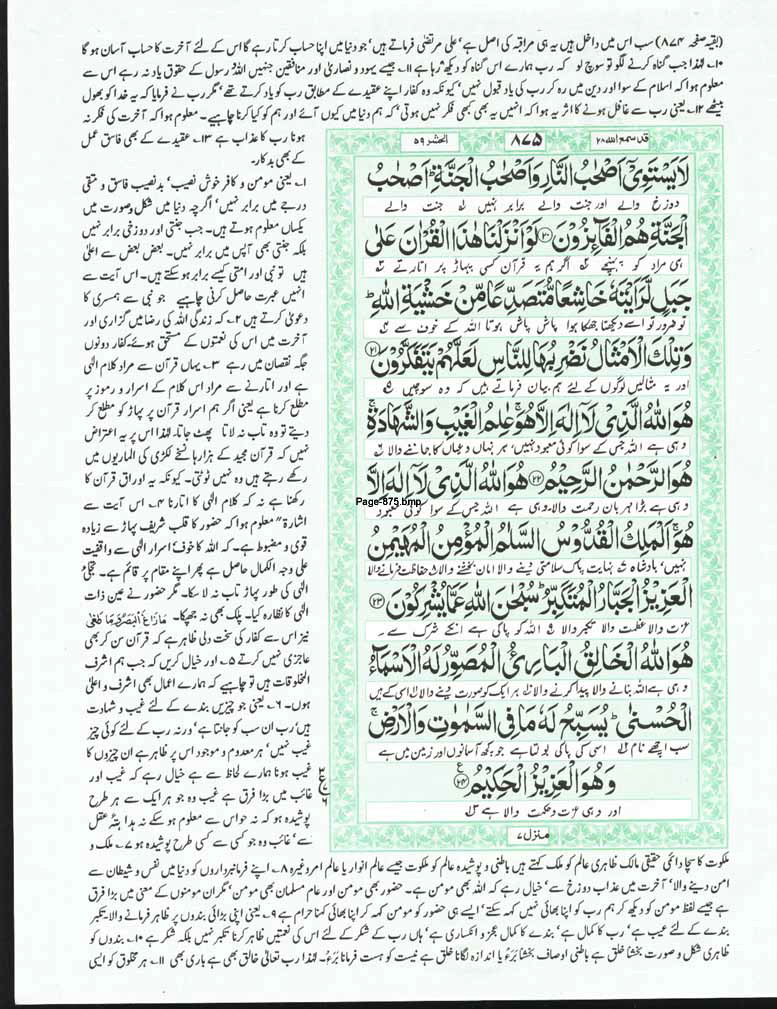 (بقیہ صفحہ ۸۷۴) سب اس میں داخل ہیں یہ ہی مراقبہ کی اصل ہے' علی مرتضیٰ فرماتے ہیں' جو دنیا میں اپنا حساب کرتا رہے گا اس کے لئے آخرت کا حساب آسان ہو گا
۱۰۔ لہٰذا جب گناہ کرنے لگو تو سوچ لو کہ رب ہمارے اس گناہ کو دیکھ رہا ہے ۱۱۔ جیسے یہود و نصاریٰ اور منافقین جنہیں اللہ و رسول کے حقوق یاد نہ رہے اس سے
معلوم ہوا کہ اسلام کے سوا اور دین میں رہ کر رب کی یاد قبول نہیں' کیونکہ وہ کفار اپنے عقیدے کے مطابق رب کو یاد کرتے تھے' مگر رب نے فرمایا کہ یہ خدا کو بھول
بیٹھے ۱۲۔ یعنی رب سے غافل ہونے کا اثر یہ ہوا کہ انہیں یہ بھی کبھی فکر نہیں ہوتی' کہ ہم دنیا میں کیوں آئے اور ہم کو کیا کرنا چاہیے۔ معلوم ہوا کہ آخرت کی فکر نہ
ہونا رب کا عذاب ہے ۱۳۔ عقیدے کے بھی فاسق عمل
کے بھی بدکار۔
قد سمع اللہ ۲۸
۸۷۵
الحشر ۵۹
لَا يَسْتَوِيْٓ اَصْحٰبُ النَّارِ وَاَصْحٰبُ الْجَنَّةِ ؕ اَصْحٰبُ
دوزخ والے اور جنت والے برابر نہیں جنت والے
الْجَنَّةِ هُمُ الْفَآئِزُوْنَ ﴿۲۰﴾ لَوْ اَنْزَلْنَا هٰذَا الْقُرْاٰنَ عَلٰى
ہی مراد کو پہنچے اگر ہم یہ قرآن کسی پہاڑ پر اتارتے
جَبَلٍ لَّرَاَيْتَهٗ خَاشِعًا مُّتَصَدِّعًا مِّنْ خَشْيَةِ اللّٰهِ ؕ
تو ضرور تو اسے دیکھتا جھکا ہوا پاش پاش ہوتا اللہ کے خوف سے
وَتِلْكَ الْاَمْثَالُ نَضْرِبُهَا لِلنَّاسِ لَعَلَّهُمْ يَتَفَكَّرُوْنَ ﴿۲۱﴾
اور یہ مثالیں لوگوں کے لئے ہم بیان فرماتے ہیں کہ وہ سوچیں
هُوَ اللّٰهُ الَّذِيْ لَآ اِلٰهَ اِلَّا هُوَ ۚ عٰلِمُ الْغَيْبِ وَالشَّهَادَةِ ۚ
وہی ہے اللہ جس کے سوا کوئی معبود نہیں' ہر نہاں و عیاں کا جاننے والا
هُوَ الرَّحْمٰنُ الرَّحِيْمُ ﴿۲۲﴾ هُوَ اللّٰهُ الَّذِيْ لَآ اِلٰهَ اِلَّا
وہی ہے بڑا مہربان رحمت والا۔ وہی ہے اللہ جس کے سوا کوئی معبود
Page-875.bmp
هُوَ ۚ اَلْمَلِكُ الْقُدُّوْسُ السَّلٰمُ الْمُؤْمِنُ الْمُهَيْمِنُ
نہیں' بادشاہ نہایت پاک سلامتی دینے والا امان بخشنے والا حفاظت فرمانے والا
الْعَزِيْزُ الْجَبَّارُ الْمُتَكَبِّرُ ؕ سُبْحٰنَ اللّٰهِ عَمَّا يُشْرِكُوْنَ ﴿۲۳﴾
عزت والا عظمت والا تکبر والا اللہ کو پاکی ہے انکے شرک سے۔
هُوَ اللّٰهُ الْخَالِقُ الْبَارِئُ الْمُصَوِّرُ لَهُ الْاَسْمَآءُ
وہی ہے اللہ بنانے والا پیدا کرنے والا ہر ایک کو صورت دینے والا اسی کے ہیں
الْحُسْنٰى ؕ يُسَبِّحُ لَهٗ مَا فِي السَّمٰوٰتِ وَالْاَرْضِ ۚ
سب اچھے نام اسی کی پاکی بولتا ہے جو کچھ آسمانوں اور زمین میں ہے
وَهُوَ الْعَزِيْزُ الْحَكِيْمُ ﴿۲۴﴾
اور وہی عزت و حکمت والا ہے
منزل ۷
۱۔ یعنی مومن و کافر خوش نصیب' بدنصیب فاسق و متقی
درجے میں برابر نہیں' اگرچہ دنیا میں شکل و صورت میں
یکساں معلوم ہوتے ہیں۔ جب جنتی اور دوزخی برابر نہیں
بلکہ جنتی بھی آپس میں برابر نہیں۔ بعض بعض سے اعلیٰ
ہیں تو نبی اور امتی کیسے برابر ہو سکتے ہیں۔ اس آیت سے
انہیں عبرت حاصل کرنی چاہیے جو نبی سے ہمسری کا
دعویٰ کرتے ہیں ۲۔ کہ زندگی اللہ کی رضا میں گزاری اور
آخرت میں اس کی نعمتوں کے مستحق ہوئے۔ کفار دونوں
جگہ نقصان میں رہے ۳۔ یہاں قرآن سے مراد کلام الٰہی
ہے اور اتارنے سے مراد اس کلام کے اسرار و رموز پر
مطلع کرنا ہے یعنی اگر ہم اسرار قرآن پر پہاڑ کو مطلع کر
دیتے تو وہ تاب نہ لاتا پھٹ جاتا۔ لہٰذا اس پر یہ اعتراض
نہیں کہ قرآن مجید کے ہزارہا نسخے لکڑی کی الماریوں میں
رکھے رہتے ہیں وہ نہیں ٹوٹتی۔ کیونکہ یہ اوراق قرآن کا
رکھنا ہے نہ کہ کلام الٰہی کا اتارنا ۴۔ اس آیت سے
اشارۃً معلوم ہوا کہ حضور کا قلب شریف پہاڑ سے زیادہ
قوی و مضبوط ہے۔ کہ اللہ کا خوف' اسرار الٰہی سے واقفیت
علیٰ وجہ الکمال حاصل ہے پھر اپنے مقام پر قائم ہے۔ تجلیٔ
الٰہی کی طور پہاڑ تاب نہ لا سکا۔ مگر حضور نے عین ذات
الٰہی کا نظارہ کیا۔ پلک بھی نہ جھپکا۔ مَازَاغَ الْبَصَرُ وَمَا طَغٰی
نیز اس سے کفار کی سخت دلی ظاہر ہے کہ قرآن سن کر بھی
عاجزی نہیں کرتے ۵۔ اور خیال کریں کہ جب ہم اشرف
المخلوقات ہیں تو چاہیے کہ ہمارے اعمال بھی اشرف و اعلیٰ
ہوں۔ ۶۔ یعنی جو چیزیں بندے کے لئے غیب و شہادت
ہیں' رب ان سب کو جانتا ہے' ورنہ رب کے لئے کوئی چیز
غیب نہیں' ہر معدوم و موجود اس پر ظاہر ہے ان چیزوں کا
غیب ہونا ہمارے لحاظ سے ہے خیال رہے کہ غیب اور
غائب میں بڑا فرق ہے غیب وہ جو ہر ایک سے ہر طرح
پوشیدہ ہو کہ نہ حواس سے معلوم ہو سکے نہ بداہتہً عقل
سے' غائب وہ جو کسی سے کسی طرح پوشیدہ ہو ۷۔ ملک و
ملکوت کا سچا دائمی حقیقی مالک ظاہری عالم کو ملک کہتے ہیں باطنی و پوشیدہ عالم کو ملکوت جیسے عالم انوار یا عالم امر وغیرہ ۸۔ اپنے فرمانبرداروں کو دنیا میں نفس و شیطان سے
امن دینے والا' آخرت میں عذاب دوزخ سے' خیال رہے کہ اللہ بھی مومن ہے۔ حضور بھی مومن اور عام مسلمان بھی مومن' مگر ان مومنوں کے معنی میں بڑا فرق
ہے جیسے لفظ مومن کو دیکھ کر ہم رب کو اپنا بھائی نہیں کہہ سکتے' ایسے ہی حضور کو مومن کہہ کر اپنا بھائی کہنا حرام ہے ۹۔ یعنی اپنی بڑائی بندوں پر ظاہر فرمانے والا۔ تکبر
بندے کے لئے عیب ہے' رب کا کمال ہے' بندے کا کمال عجز و انکساری ہے' ہاں رب کے شکر کے لئے اس کی نعمتیں ظاہر کرنا تکبر نہیں بلکہ شکر ہے ۱۰۔ بندوں کو
ظاہری شکل و صورت بخشنا خلق ہے باطنی اوصاف بخشنا بَرَءُ یا اندازہ لگانا خلق ہے نیست کو ہست فرمانا بَرَءُ۔ لہٰذا رب تعالیٰ خالق بھی ہے باری بھی ۱۱۔ ہر مخلوق کو ایسی